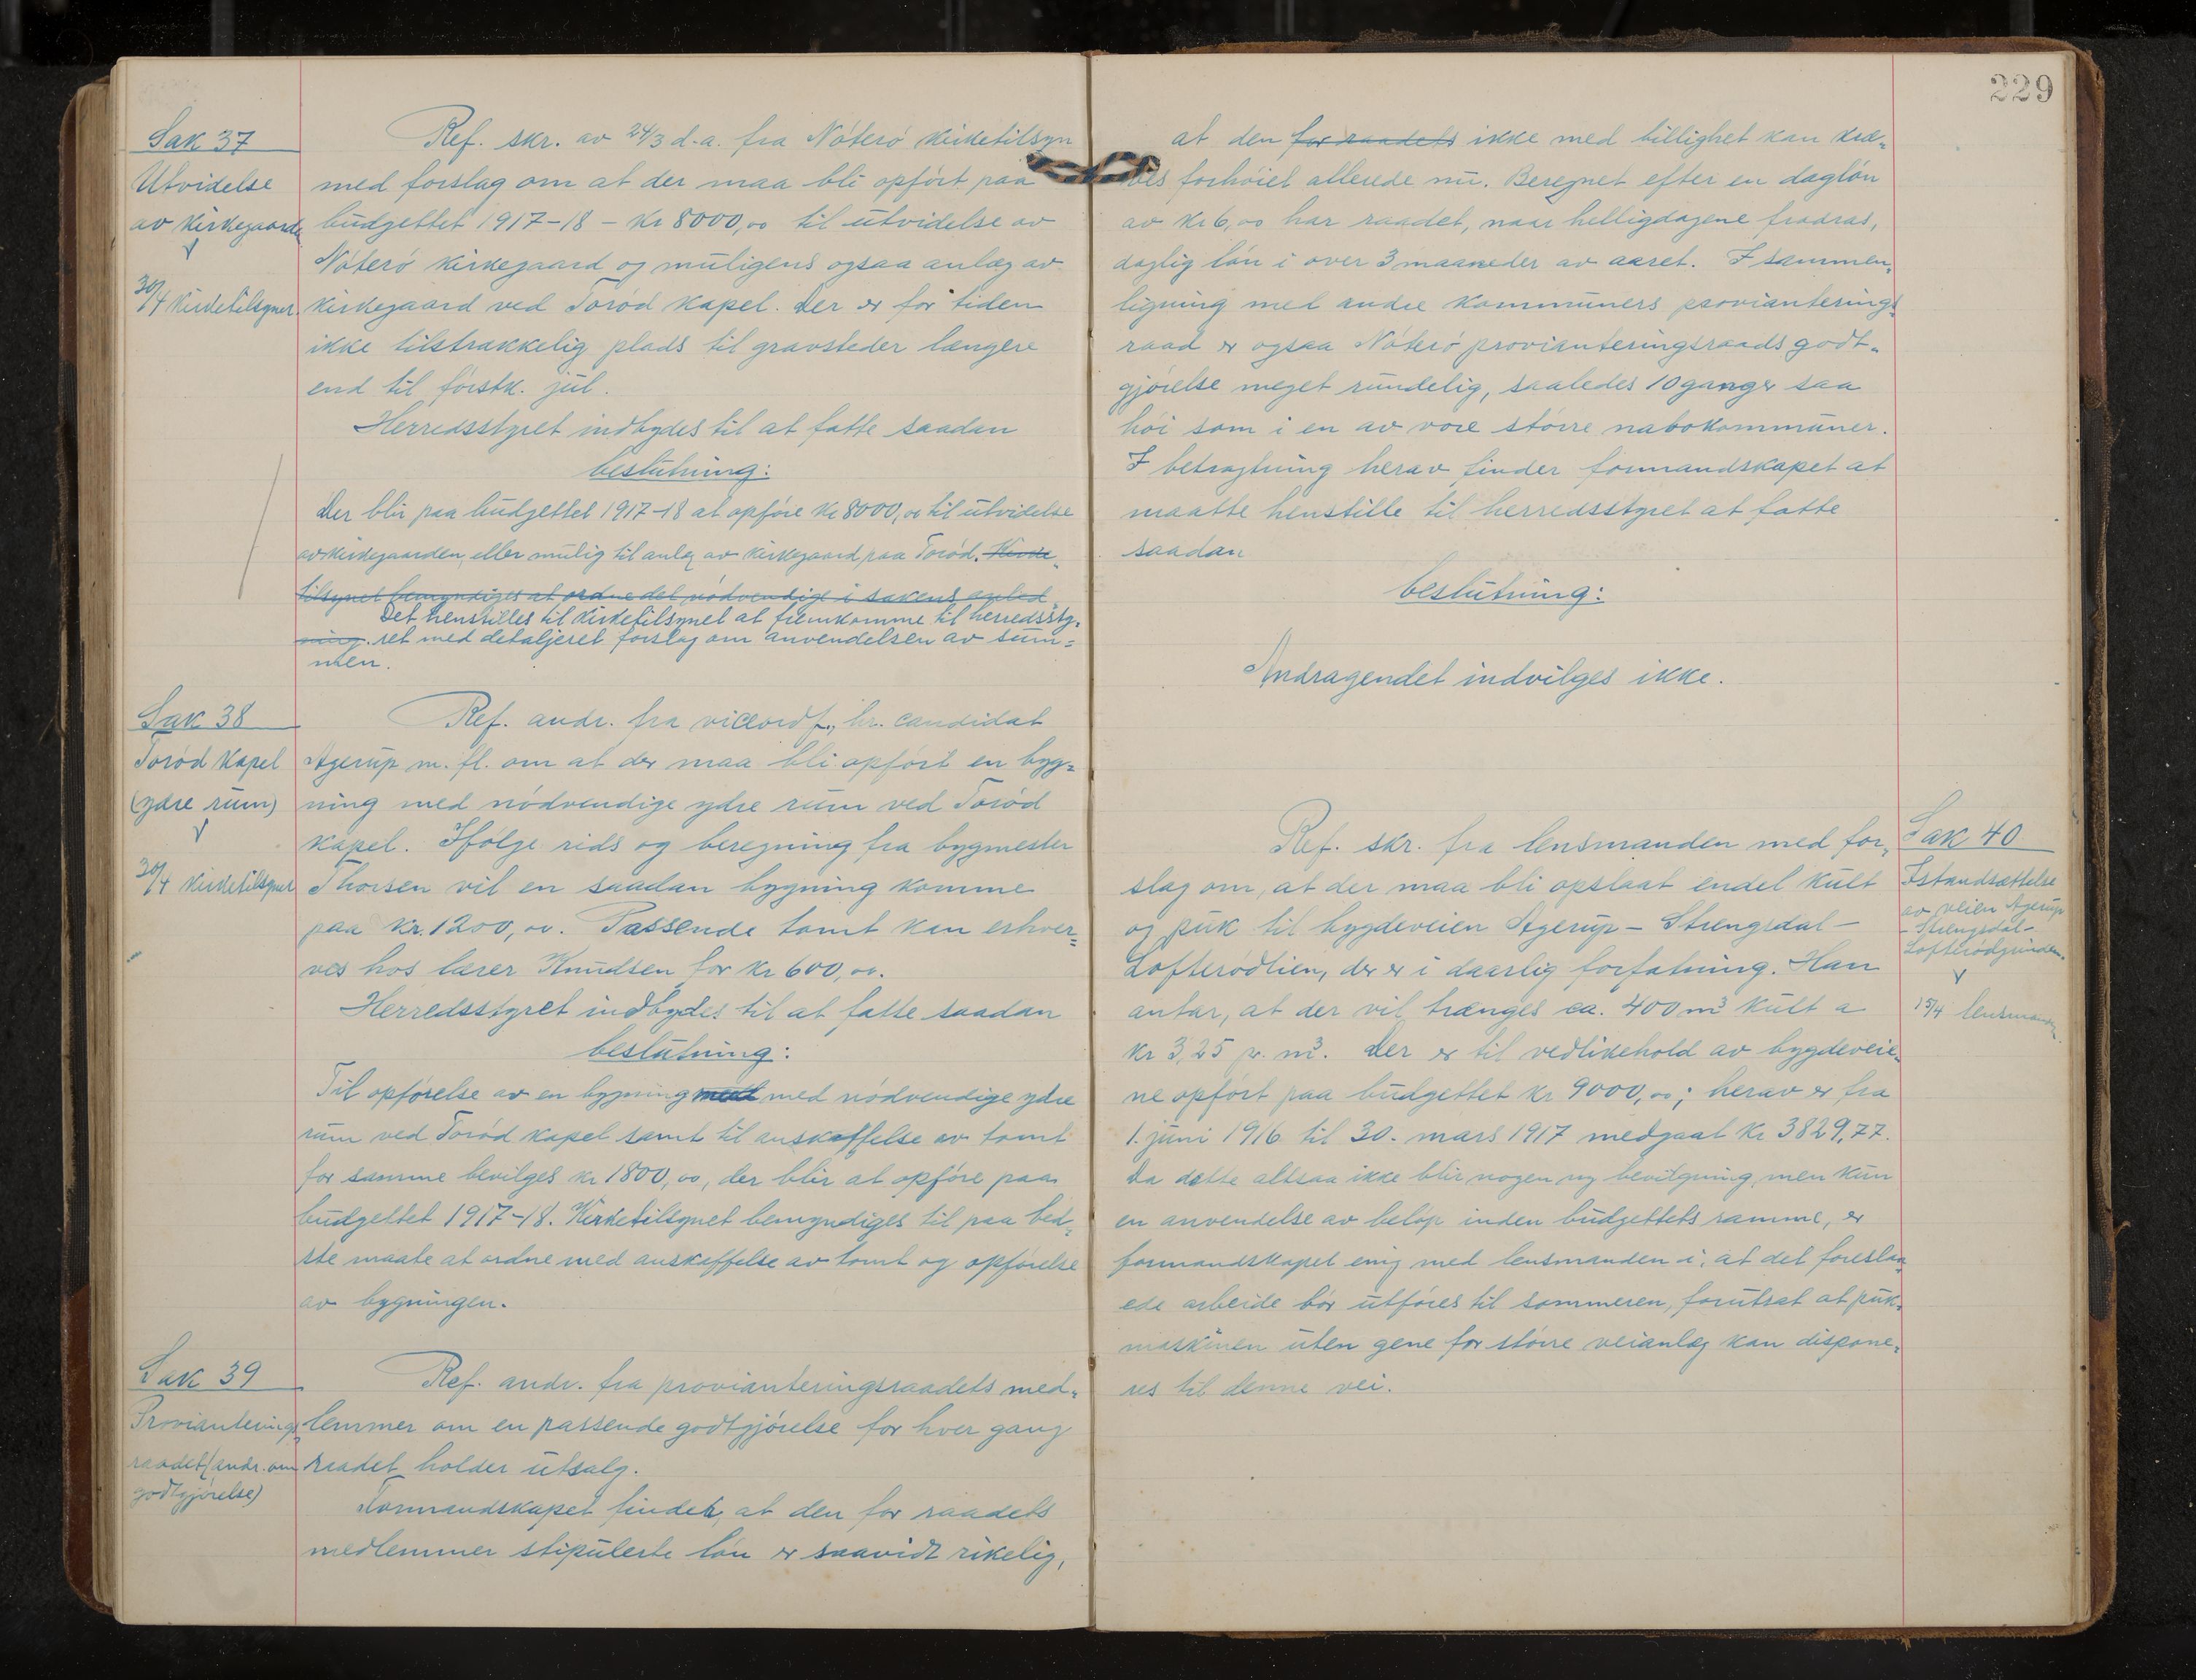 229
Sak 37
Utvidelse
av kirkegaarde
30/4 Kirketilsynet.
Ref. skr. av 24/3 d.a. fra Nøterø kirketilsyn
med forslag om at der maa bli opført paa
budgettet 1917-18 - kr 8000,00 til utvidelse av
Nøterø kirkegaard og muligens ogsaa anlæg av
kirkegaard ved Torød kapel. Der er for tiden
ikke tilstrækkelig plads til gravsteder længere
end til førstk. jul.
Herredsstyret indbydes til at fatte saadan
beslutning:
Der blir paa budgettet 1917-18 at opføre kr 8000,00 til utvidelse
av kirkegaarden, eller mulig til anlæg av kirkegaard paa Torød. Kirke-
tilsynet bemyndiges at ordne det nødvendige i sakens anled
Det henstilles til kirketilsynet at fremkomme til herredssty-
ning. ret med detaljeret forslag om anvendelsen av sum=
men.
Sak 38
Torød Kapel
(ydre rum)
30/4 Kirketilsynet
Ref. andr. fra viceordf., hr. candidat
Agerup m. fl. om at der maa bli opført en byg=
ning med nødvendige ydre rum ved Torød
kapel. Ifølge rids og beregning fra bygmester
Thorsen vil en saadan bygning komme
paa kr. 1200,00. Passende tomt kan erhver=
ves hos lærer Knudsen for kr 600,00.
Herredsstyret indbydes til at fatte saadan
beslutning:
Til opførelse av en bygning med med nødvendige ydre
rum ved Torød kapel samt til anskaffelse av tomt
for samme bevilges kr 1800,00, der blir at opføre paa
budgettet 1917-18. Kirketilsynet bemyndiges til paa bed-
ste maate at ordne med anskaffelse av tomt og opførelse
av bygningen.
Sak 39
Provianterings-
raadet (andr. om
godtgjørelse)
Ref. andr. fra provianteringsraadets med-
lemmer om en passende godtgjørelse for hver gang
raadet holder utsalg.
Formandskapet finder, at den for raadets
medlemmer stipulerte løn er saavidt rikelig,
at den for raadets ikke med billighet kan kræ-
ves forhøiet allerede nu. Beregnet efter en dagløn
av kr 6,00 har raadet, naar helligdagene fradras,
daglig løn i over 3 maaneder av aaret. I sammen-
ligning met andre kommuners provianterings-
raad er ogsaa Nøterø provianteringsraads godt-
gjørelse meget rundelig, saaledes 10 ganger saa
høi som i en av vore større nabokommuner.
I betragtning herav finder formandskapet at
maatte henstille til herredsstyret at fatte
saadan
beslutning:
Andragendet indvilges ikke.
Sak 40
Istandsættelse
av veien Agerup
- Strengsdal -
Lofterødgrinden.
15/4 lensmanden
Ref. skr. fra lensmanden med for-
slag om, at der maa bli opslaat endel kult
og puk til bygdeveien Agerup - Strengsdal -
Lofterødlien, der er i daarlig forfatning. Han
antar, at der vil trænges ca. 400 m³ kult a
kr 3,25 pr. m³. Der er til vedlikehold av bygdeveie-
ne opført paa budgettet kr 9000,00; herav er fra
1. juni 1916 til 30. mars 1917 medgaat kr 3829,77.
Da dette altsaa ikke blir nogen ny bevilgning, men kun
en anvendelse av beløp inden budgettets ramme, er
formandskapet enig med lensmanden i, at det foreslaa-
ede arbeide bør utføres til sommeren, forutsat at puk-
maskinen uten gene for større veianlæg kan dispone-
res til denne vei.